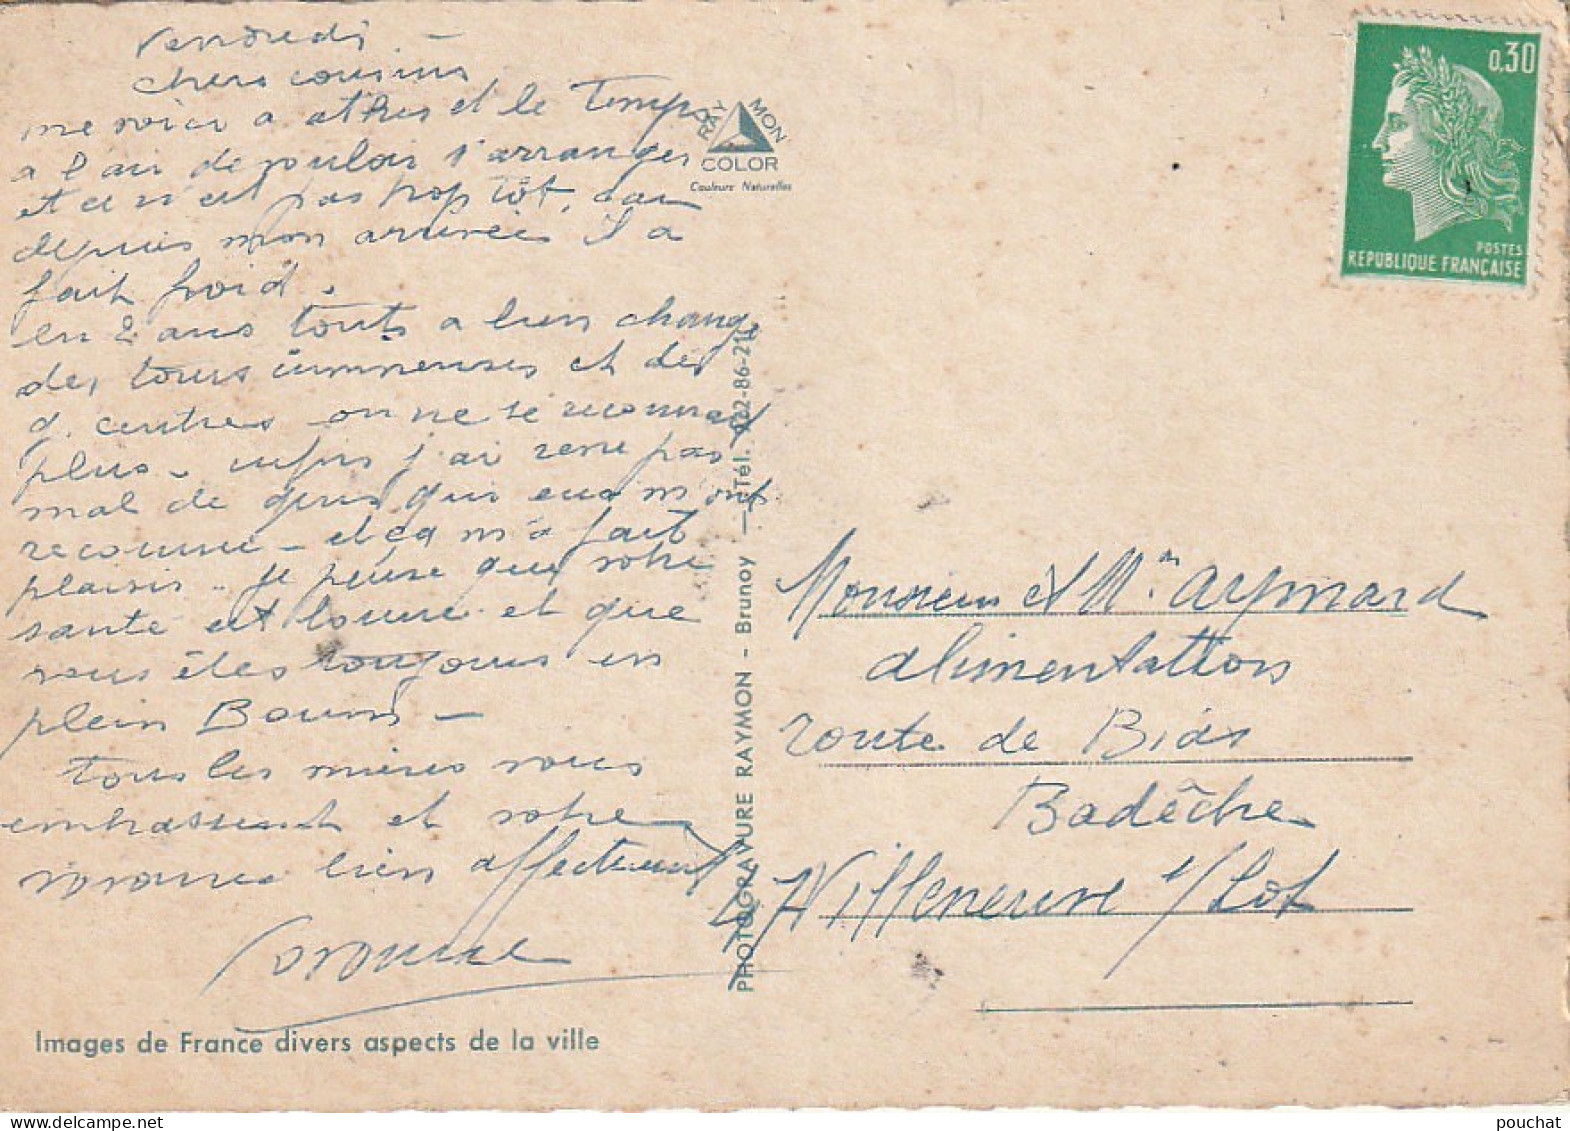 Vendredi -
chers cousins
me voici a athis et le Temps
a l'air de vouloir s'arranger
et ce n'est pas trop tôt, car
depuis mon arrivée il a
fait froid.
en 2 ans touts a bien change
des tours immenses et des
g. centres on ne se reconnait
plus - enfin j'ai revu pas
mal de gens qui eux m'ont
reconnue - et ça m'a fait
plaisir .. je pense que votre
santé est bonne et que
vous êtes toujours en
plein Boum -
tous les miens vous
embrassent et votre
bien affectueuse
RAYMON
COLOR
Couleurs Naturelles
0,30
POSTES
REPUBLIQUE FRANÇAISE
PHOTOGRAVURE RAYMON - Brunoy — Tél. 922-86-21
Monsieur et Mm Aymard
alimentation
route de Bias
Badêche
47 Villeneuve s/Lot
Images de France divers aspects de la ville
pouchat